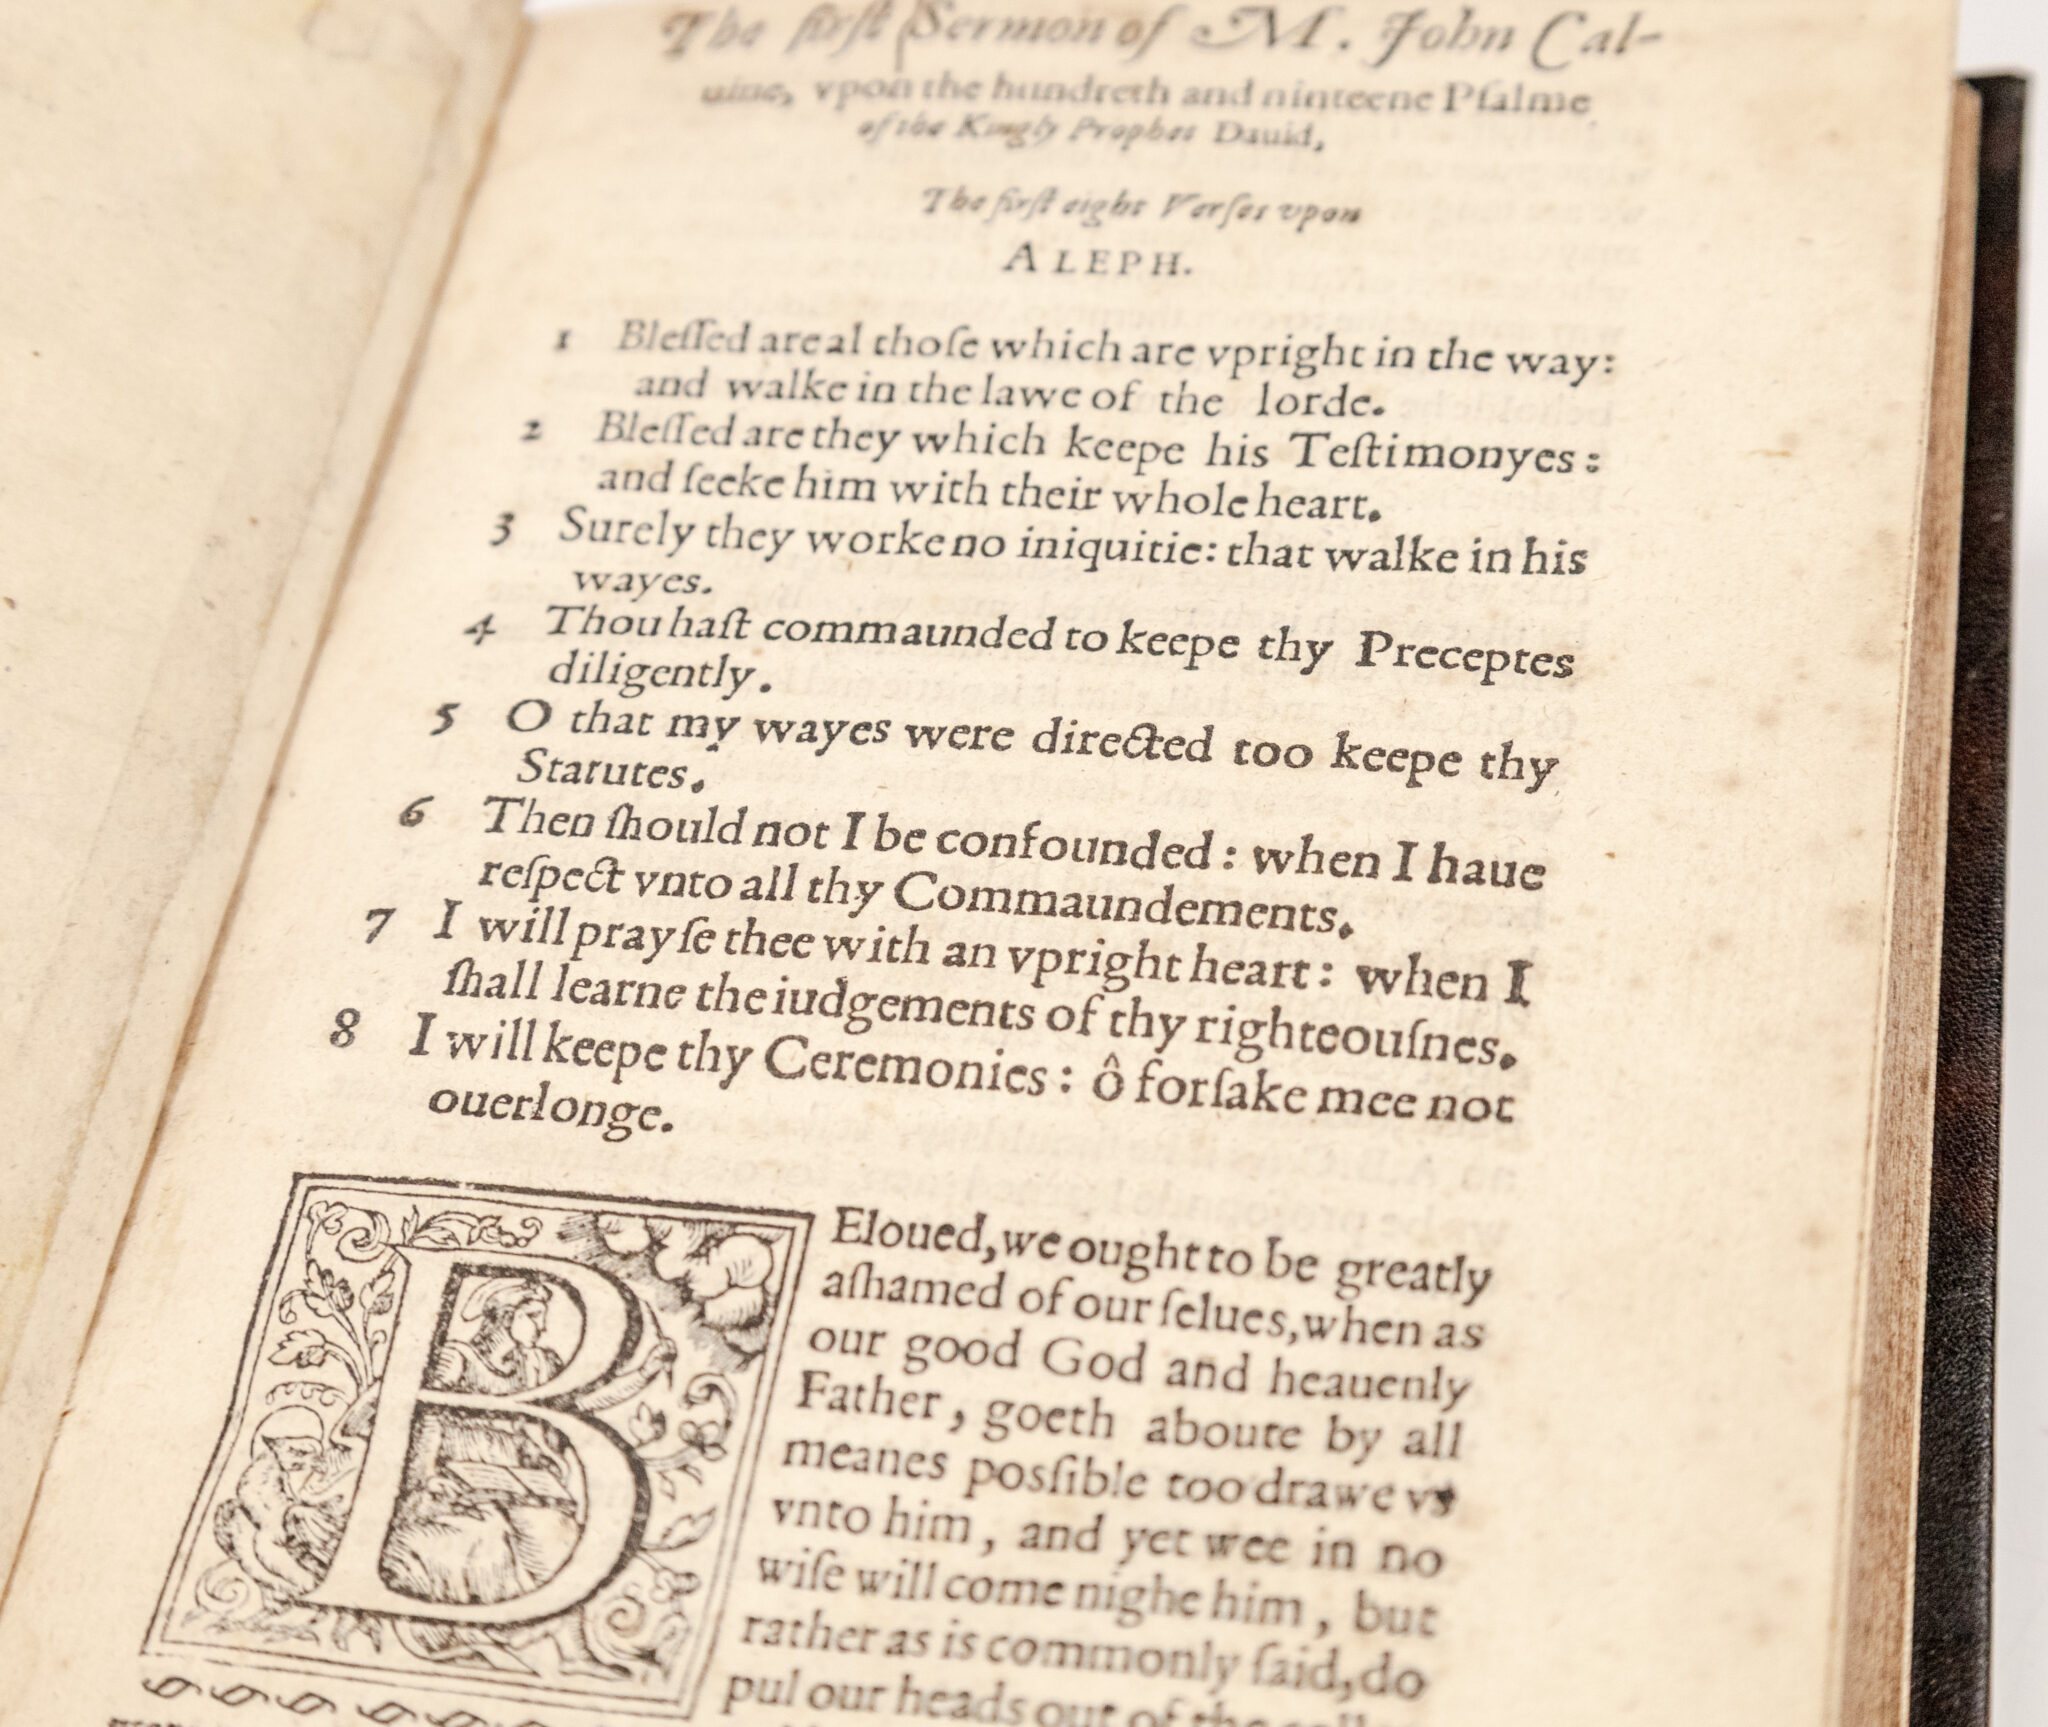 The firſt Sermon of M. John Cal-
uine, vpon the hundreth and ninteene Pſalme
of the Kingly Prophet Dauid,
The firſt eight Verſes vpon
ALEPH.
1 Bleſſed are al thoſe which are vpright in the way:
and walke in the lawe of the lorde.
2 Bleſſed are they which keepe his Teſtimonyes:
and ſeeke him with their whole heart.
3 Surely they worke no iniquitie: that walke in his
wayes.
4 Thou haſt commaunded to keepe thy Preceptes
diligently.
5 O that my wayes were directed too keepe thy
Statutes.
6 Then ſhould not I be confounded: when I haue
reſpect vnto all thy Commaundements.
7 I will prayſe thee with an vpright heart: when I
ſhall learne the iudgements of thy righteouſnes.
8 I will keepe thy Ceremonies: ô forſake mee not
ouerlonge.
BEloued, we ought to be greatly
aſhamed of our ſelues, when as
our good God and heauenly
Father, goeth aboute by all
meanes poſſible too drawe vs
vnto him, and yet wee in no
wiſe will come nighe him, but
rather as is commonly ſaid, do
pul our heads out of the